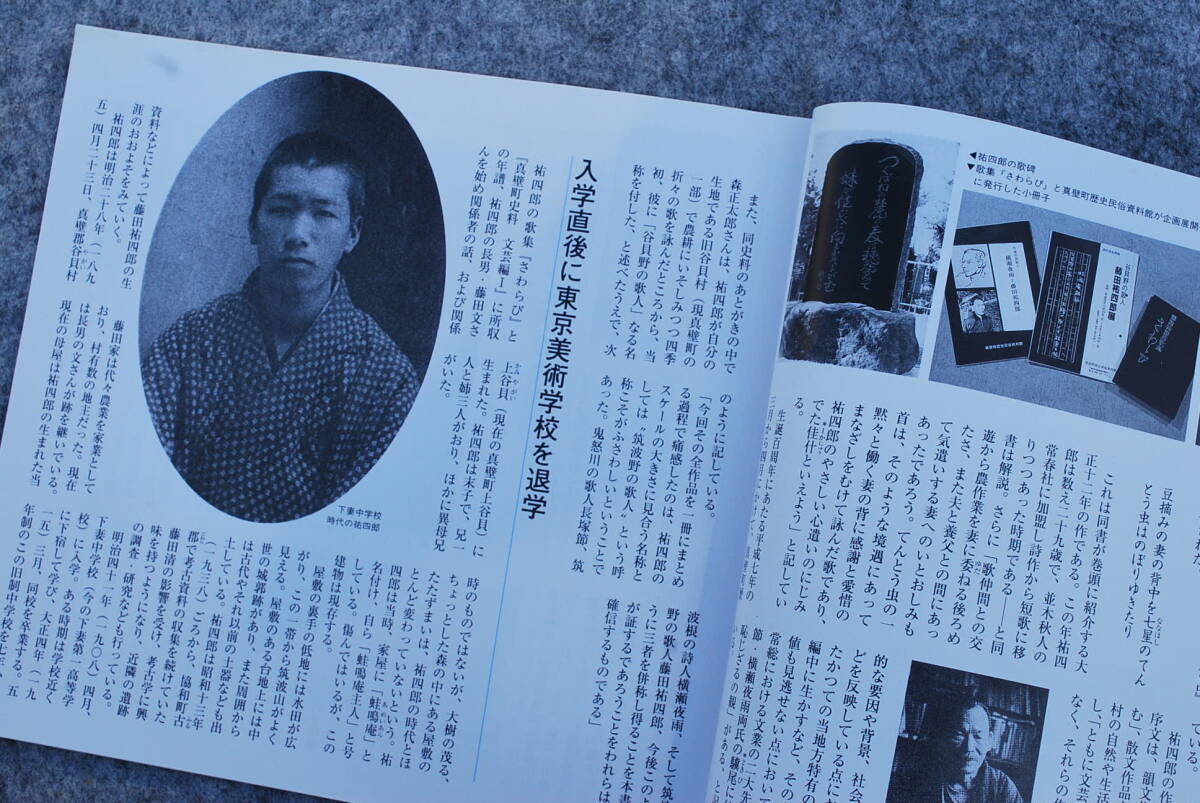 ◀祐四郎の歌碑
▼歌集『さわらび』と真壁町歴史民俗資料館が企画展開
に発行した小冊子
谷貝野の歌人
藤田祐四郎展
豆摘みの妻の背中を七星のてん
とう虫はのぼりゆきたり
これは同書が巻頭に紹介する大
正十二年の作である。この年祐四
郎は数え二十九歳で、並木秋人の
常春社に加盟し詩作から短歌に移
りつつあった時期である――と同
書は解説。さらに「歌仲間との交
遊から農作業を妻に委ねる後ろめ
たさ、また夫と養父との間にあっ
て気遣いする妻へのいとおしみも
あったであろう。てんとう虫の一
首は、そのような境遇にあって
黙々と働く妻の背に感謝と愛憎の
まなざしをむけて詠んだ歌であり、
祐四郎のやさしい心遣いのにじみ
でた佳什といえよう」と記してい
る。
生誕百周年にあたる平成七年の
的な要因や背景、社会
どを反映している点に
たかつての当地方特有の
編中に生かすなど、その
値も見逃せない点におい
常総における文業の二大先
節・横瀬夜雨両氏の驥尾に
恥じざるの観」がある、と
ている。
祐四郎の作
序文は、韻文
む」、散文作品
村の自然や生活
し、「ともに文芸
なく、それらの
また、同史料のあとがきの中で
森正太郎さんは、祐四郎が自分の
生地である旧谷貝村（現真壁町の
一部）で農耕にいそしみつつ四季
折々の歌を詠んだところから、当
初、彼に「谷貝野の歌人」なる名
称を付した、と述べたうえで、次
のように記している。
「今回その全作品を一冊にまとめ
る過程で痛感したのは、祐四郎の
スケールの大きさに見合う名称と
しては〝筑波野の歌人〟という呼
称こそがふさわしいということで
あった。鬼怒川の歌人長塚節、筑
波根の詩人横瀬夜雨、そして筑波
野の歌人藤田祐四郎、今後このよ
うに三者を併称し得ることを本書
が証するであろうことをわれらは
確信するものである」
入学直後に東京美術学校を退学
祐四郎の歌集『さわらび』と
『真壁町史料　文芸編Ⅰ』に所収
の年譜、祐四郎の長男　藤田文さ
んを始め関係者の話、および関係
資料などによって藤田祐四郎の生
涯のおおよそをみていく。
祐四郎は明治二十八年（一八九
五）四月二十三日、真壁郡谷貝村
上谷貝（現在の真壁町上谷貝）に
生まれた。祐四郎は末子で、兄一
人と姉三人がおり、ほかに異母兄
がいた。
下妻中学校
時代の祐四郎
藤田家は代々農業を家業として
おり、村有数の地主だった。現在
は長男の文さんが跡を継いでいる。
現在の母屋は祐四郎の生まれた当
時のものではないが、大樹の茂る、
ちょっとした森の中にある屋敷の
たたずまいは、祐四郎の時代とほ
とんど変わっていないという。祐
四郎は当時、家屋に「蛙鳴庵」と
名付け、自ら「蛙鳴庵主人」と号
している。傷んではいるが、この
建物は現存する。
屋敷の裏手の低地には水田が広
がり、この一帯から筑波山がよく
見える。屋敷のある台地上には中
世の城郭跡があり、また周囲から
は古代やそれ以前の土器なども出
土している。祐四郎は昭和十三年
（一九三八）ごろから、協和町古
郡で考古資料の収集を続けていた
藤田清の影響を受け、考古学に興
味を持つようになり、近隣の遺跡
の調査・研究なども行っている。
明治四十一年（一九〇八）四月、
下妻中学校（今の下妻第一高等学
校）に入学。ある時期は学校近く
に下宿して学び、大正四年（一九
一五）三月、同校を卒業する。五
年制のこの旧制中学校を七年、